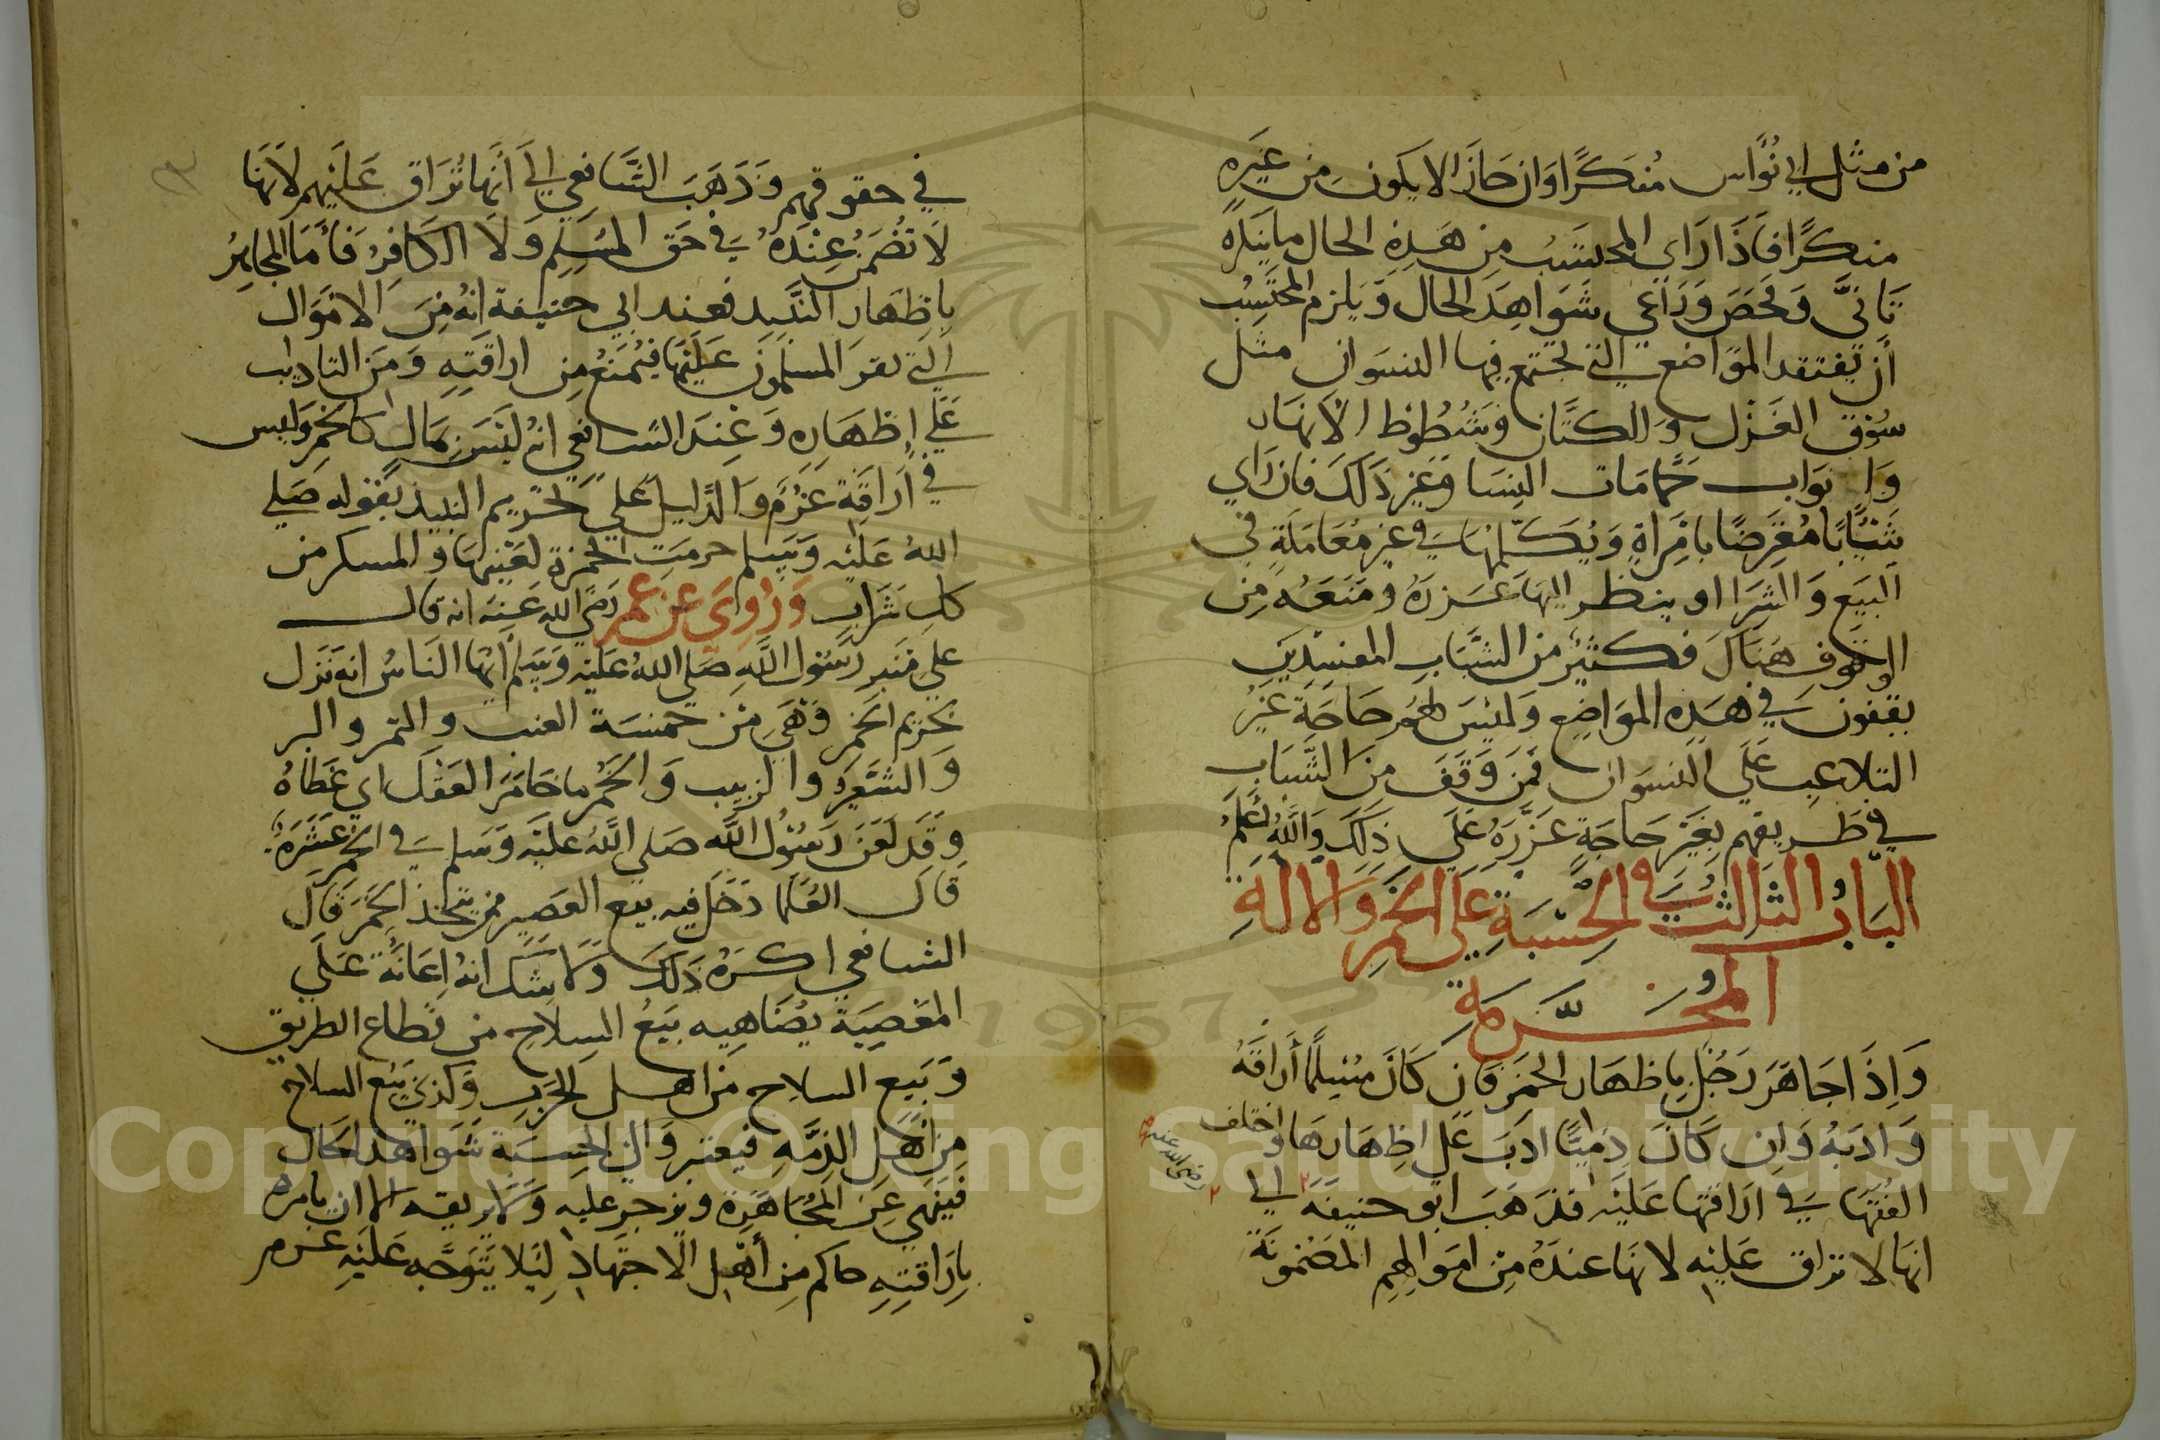 من مثل ابي نُوَّاس مُنكرًا وَان جَازَ الا يكونَ من غَيرِهِ
منكرًا فاذَا رَاي المحتسَبُ مِن هَذِهِ الحال ما ينكره
تَاَنيَّ وَفحَصَ وَرَاعي شَوَاهِدَ الحال وَيلزم المحتَسِبُ
أن يَفتقد الموَاضع التي تجتمع فيها النسوان مثل
سُوق الغَزْل وَالكتَّان وشطُوط الانهار
وَابواب حَمامَات النِسَا وَغير ذَلكَ فان رَاي
شَبَابًا مُعَرضًا بامْرَاةٍ وَيُكَلمُهَا في غير مُعَامَلَةٍ في
البَيع وَالشرَا او ينظر اليهَا عَزرَهُ وَمَنعَهُ مِن
الوقوفِ هنَاكَ فكثيرٌ من الشبَابِ المفسِدِينَ
يقفون في هَذِهِ الموَاضِع وَليسَ لهم حَاجَة غيرُ
التلاعب عَلَي النسوَان فَمن وَقفَ منَ الشَّبَابِ
في طَريقهم بغيرِ حَاجَةٍ عزَّرَهُ عَلَي ذلكَ وَاللَّهُ اعلمُ
البَابُ الثالثُ في الحِسْبَةِ عَلَي الخمرِ وَالالةِ
المُحَرَّمَةِ
وَاِذَا جَاهَرَ رَجُل باظهَار الخمَر فان كَانَ مُسْلمًا أرَاقَهُ
وَادبَهُ وَان كَانَ ذميًّا ادبَ عَلي اظِهارهَا وَاختلف
الفُقهَا في ارَاقتهَا عَليْه فذَهَبَ ابو حنيفَة الي
رضي الله عنه
انهَا لا تراق عَليْه لانهَا عندَهُ مِن اموَالهِم المضمونَة
في حقوقهم وَذَهَبَ الشَّافعي الَي أَنهَا تُرَاق عَلَيهم لاَنهَا
لا تضمَنُ عِنْدَهُ في حَق المُسَلِم وَلا الكافِرِ فَأمَا المجَاهِرُ
باظهَار النَّبيذ فعند ابي حنيفة انهُ مِنَ الامْوَال
التي يقر المسْلمونَ عَليْهَا فيُمنَعُ مِن اراقَتِهِ وَمِنَ التادِيب
عَلَي إظهَارِهِ وَعِندَ الشَافعي انهُ لَيْسَ بمَالٍ كَالخمرِ وَليس
في اَراقَتِهِ غُرْم وَالدَّليل عَلي تحريم النبيذ بقوله صَلي
اللهُ عَليْه وَسَلم حرمَتِ الخمرَة لعَيْنِهَا وَالمسكر من
كل شَرَابٍ وَرُوِيَ عن عُمَر رَضيَ الله عَنهُ انه قال
علي منبر رَسُول اللَّهِ صَلَي اللهُ عَليْه وَسَلم ايهَا النَاسُ انهُ نَزَل
تحريم الخمرِ وَهَي مِن خمسَة العنب والتمر والبر
وَالشعَيرِ والزبيب وَالخَمرُ ما خَامَرَ العَقل اي غَطاهُ
وَقَد لعَنَ رَسُول اللَّه صَلي اللَّهُ عَليَه وَسَلم في الخمر عَشَرَة
قال العُلمَا دَخَل فيه بيع العَصِير ممن يتخذ الخَمَر قَالَ
الشافعي اكرَهُ ذَلكَ وَلا شَكَ انهُ اِعَانَة عَلَي
المعَصِيَة يُضَاهِيه بَيْعُ السلاح من قطاع الطريق
وَبَيع السلاح من اهل الحَربِ وَكذلك بَيْع السلاح
من اهْل الذِّمَّهِ فيعتبر وَالي الحِسْبَة شَوَاهد الحَال
فيَنهَي عَن المُجَاهَرَة ويزجر عَليْه وَلا يريقه الا ان يامره
بإرَاقتِهِ حاكم مِن أهْل الاجتهَادِ ليَلا يَتَوَجَّه عَليْهِ غرم